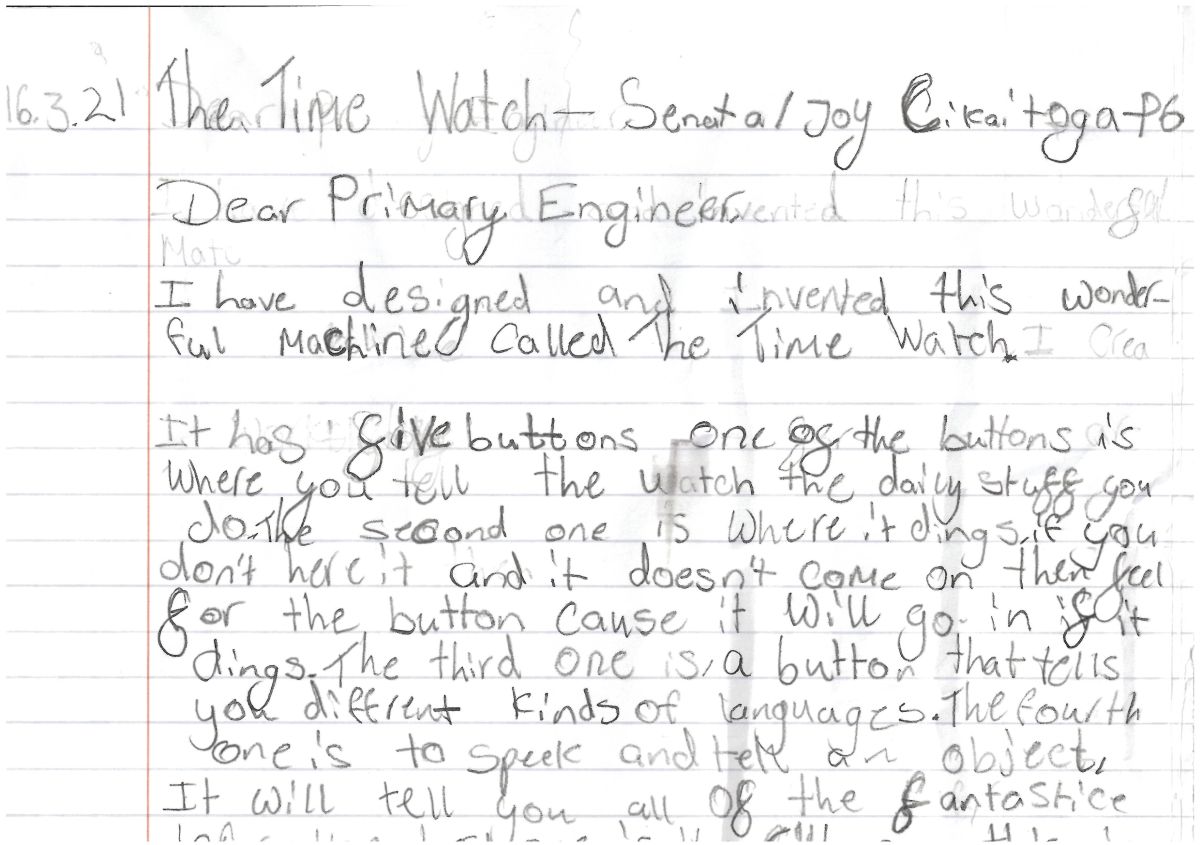 16.3.21 The Time Watch - Senata/Joy Cikaitoga-P6
Dear Primary Engineer,
I have designed and invented this wonder-
ful Machine Called The Time Watch.
It has five buttons one of the buttons is
Where you tell the watch the daily stuff you
do. The second one is Where it dings, if you
don't here it and it doesn't come on then feel
for the button cause it Will go in if it
dings. The third one is a button that tells
you diffrent kinds of languages. The fourth
one is to speek and tell an object,
It will tell you all of the fantastice